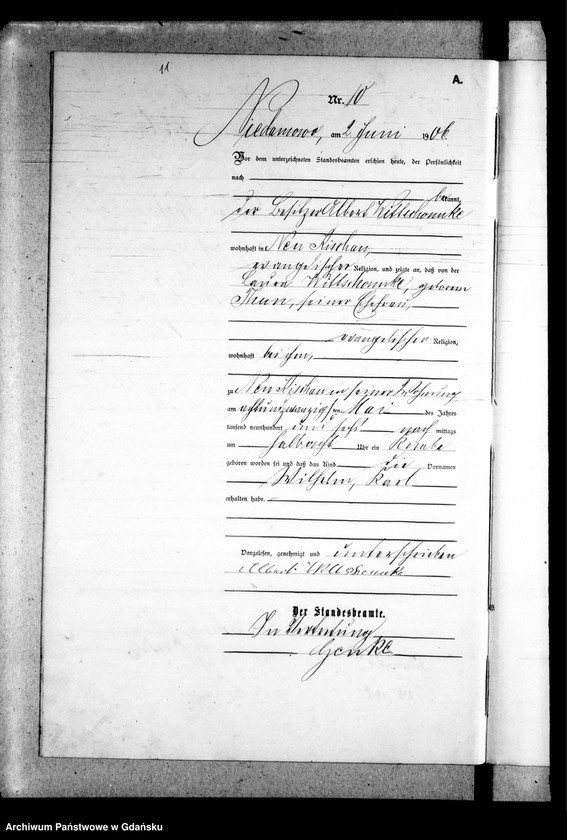 11
A.
Nr. 10
Niedamowo, am 2 Juni 1906.
Vor dem unterzeichneten Standesbeamten erschien heute, der Persönlichkeit
nach
bekannt,
der Besitzer Albert Wittschonnke
wohnhaft in Neu Kischau,
evangelischer Religion, und zeigte an, daß von der
Laura Wittschonnke, geborenen
Thun, seiner Ehefrau,
evangelischer Religion,
wohnhaft bei ihm,
zu Neu Kischau in seiner Wohnung
am achtundzwanzigsten Mai des Jahres
tausend neunhundert und sechs nachmittags
um halbacht Uhr ein Knabe
geboren worden sei und daß das Kind die Vornamen
Wilhelm, Karl
erhalten habe.
Vorgelesen, genehmigt und unterschrieben
Albert Wittschonnke
Der Standesbeamte.
In Vertretung
Archiwum Państwowe w Gdańsku